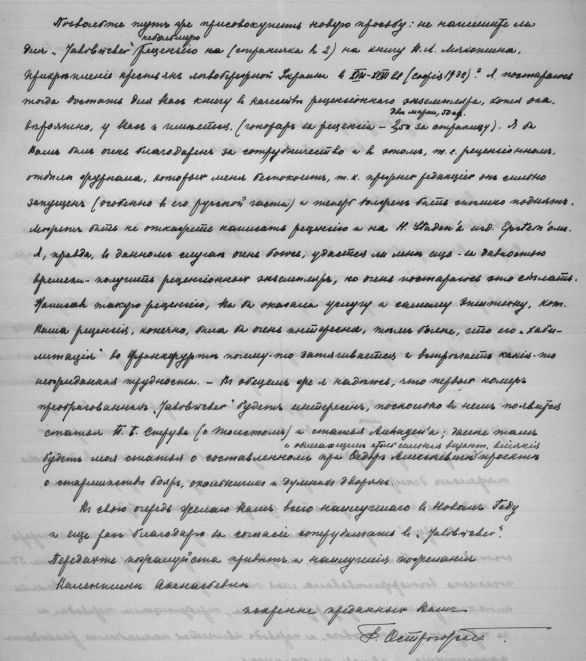 Позвольте тут же присовокупить новую просьбу: не напишете ли
для „Jahrbücher“ небольшую рецензію на (странички в 2) на книгу В. А. Мякотина,
Прикрѣпленіе крестьян лѣвобережной Украины в XVII-XVIII вв (Софія 1932)? Я постараюсь
тогда достать для Вас книгу в качествѣ рецензіоннаго экземпляра, хотя она,
вѣроятно, у Вас и имѣется. (гонорар за рецензіи – 2,50 две марки, 50 пф. за страницу). Я бы
Вам был очень благодарен за сотрудничество и в этом, т. е. рецензіонном
отдѣлѣ журнала, который меня безпокоит, т. к. прежней редакціей он сильно
запущен (особенно в его русской части) и теперь должен быть спешно поднят.
Может быть не откажете написать рецензію и на H. Staden'а изд. Epstein'ом.
Я, правда, в данном случаѣ очень боюсь, удастся ли мнѣ еще – за давностью
времени – получить рецензіонный экземпляр, но очень постараюсь это сдѣлать.
Написав такую рецензію, Вы бы оказали услугу и самому Эпштейну, кот.
Ваша рецензія, конечно, была бы очень интересна, тѣм болѣе, что его „хаби-
литація“ во Франкфуртѣ почему-то затягивается и встрѣчает какія-то
неожиданныя трудности. – В общем же я надѣюсь, что первый номер
преобразованных „Jahrbücher“ будет интересен, поскольку в нем появится
статья П. Б. Струве (о Толстом) и статья; далее там
будет моя статья о составленном при Ѳедорѣ Алексѣевичѣ проектѣ
о старшинствѣ бояр, окольничих и думных дворян.
В свою очередь желаю Вам всего наилучшаго в Новом Году
и еще раз благодарю за согласіе сотрудничать в „Jahrbücher“.
Передайте пожалуйста привѣт и наилучшія пожеланія
Валентинѣ Аѳанасьевнѣ
искренне преданный Вам
Г. Острогорскій